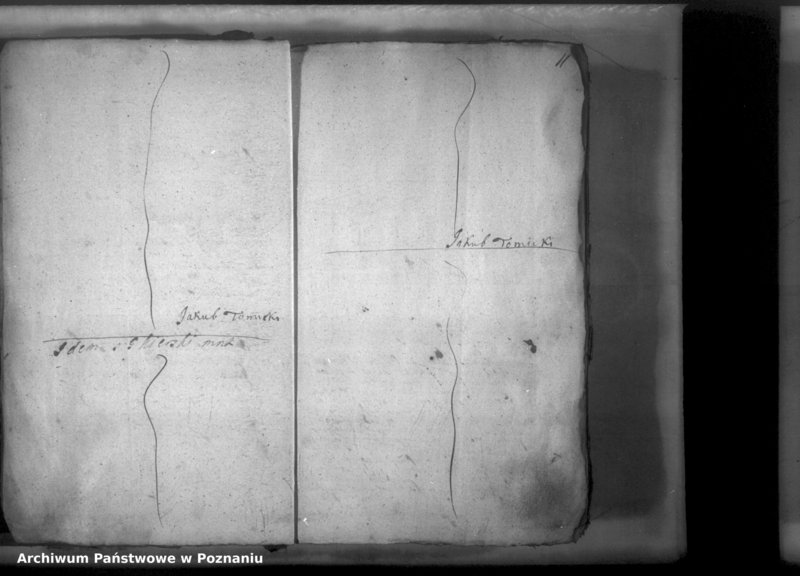 Jakub Tomicki
Idem
11
Jakub Tomicki
Archiwum Państwowe w Poznaniu